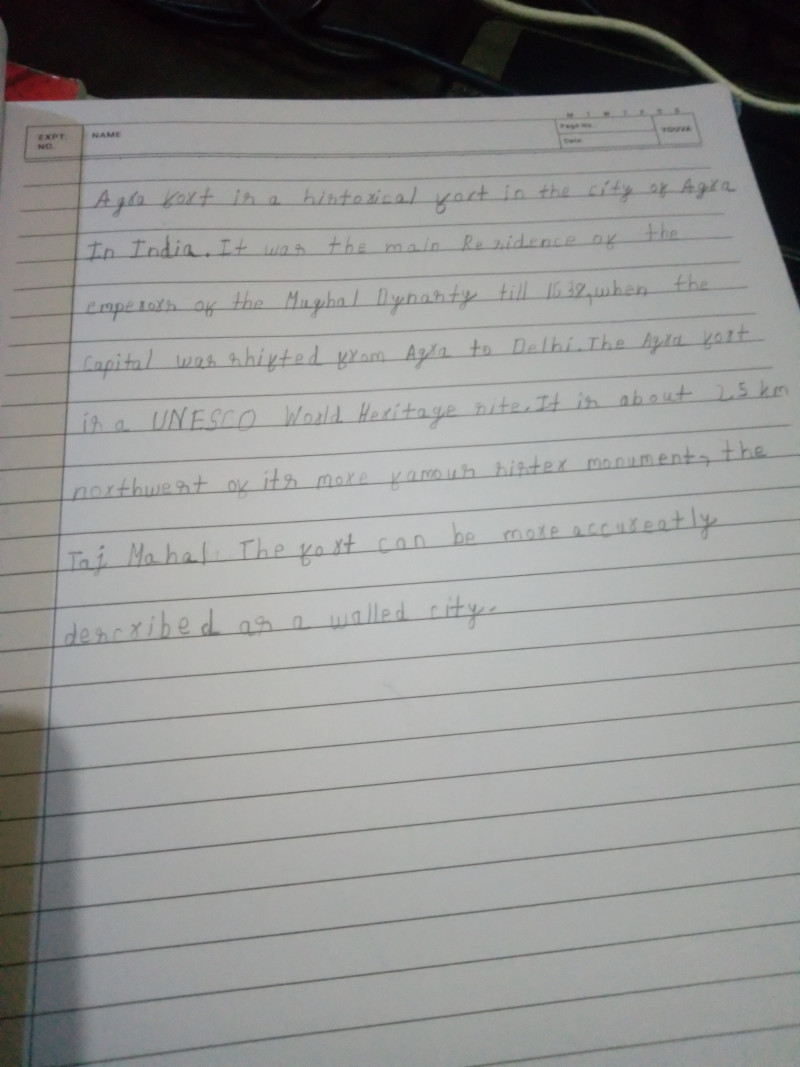 M T W T F S S
EXPT. NO.
NAME
Page No.
Date
YOUVA
Agra fort is a historical fort in the city of Agra
In India. It was the main Residence of the
emperors of the Mughal Dynasty till 1638, when the
Capital was shifted from Agra to Delhi. The Agra fort
is a UNESCO World Heritage site. It is about 2.5 km
northwest of its more famous sister monument, the
Taj Mahal. The fort can be more accureatly
described as a walled city.